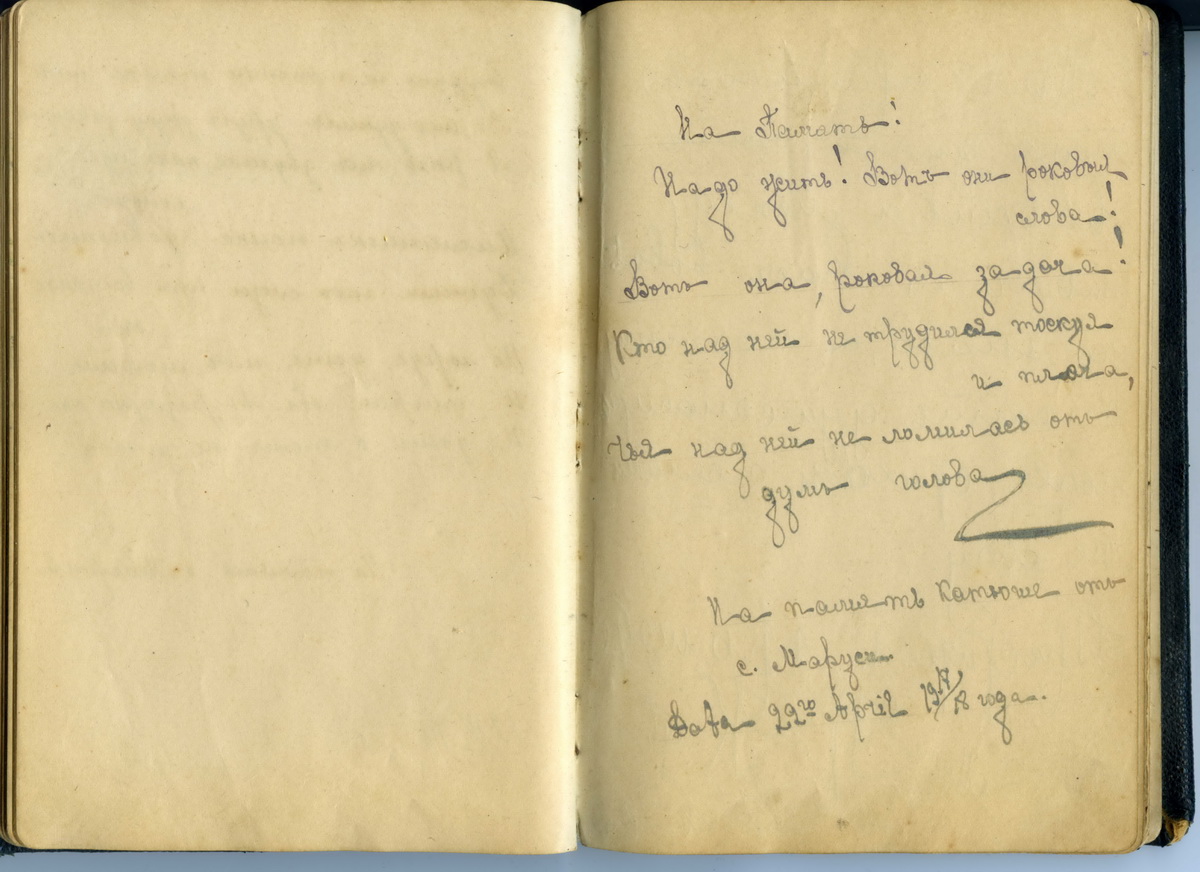 На Память!
Надо жить! Вотъ они роковыя
слова!
Вотъ она, роковая задача!
Кто над ней не трудился тоскуя
и плача,
Чья над ней не ломилась отъ
думъ голова
На память Катюше отъ
с. Маруси.
22го April 19 17/18 года.